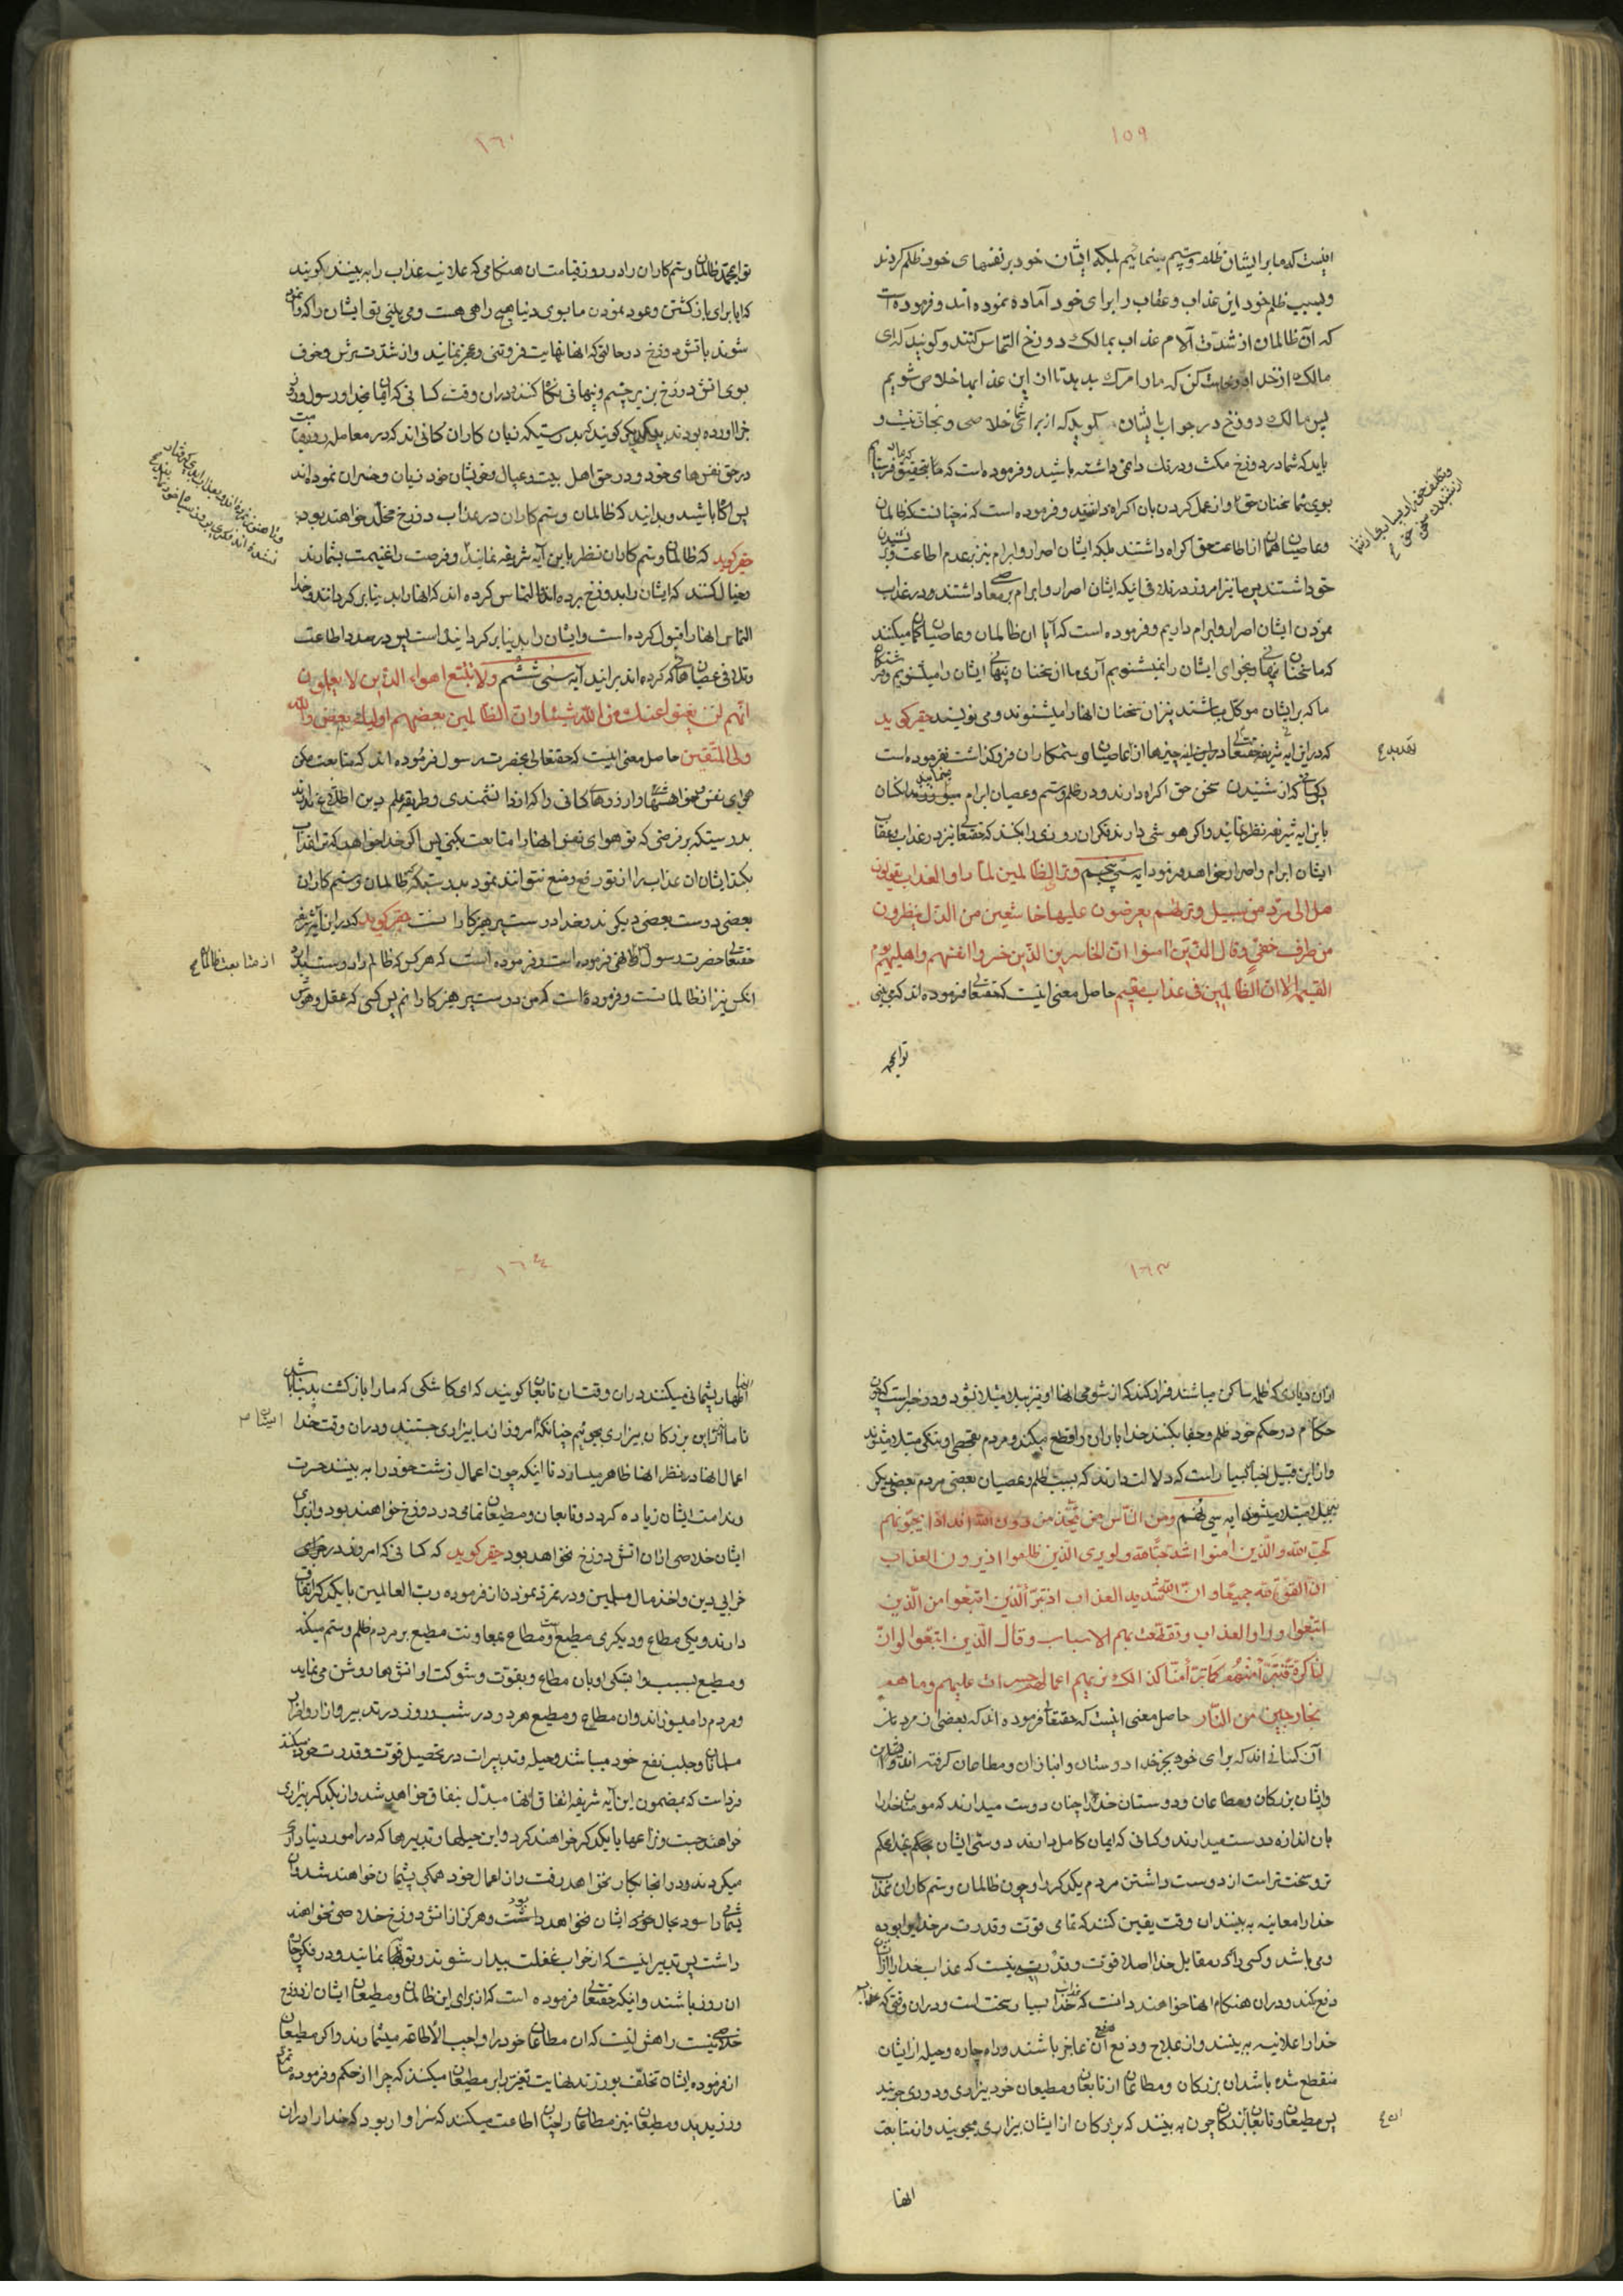 ١٥٩
اینست که ما بر ایشان ظلم وستم نمینمائیم بلکه ایشان خود بر نفسهای خود ظلم کردند
وبسبب ظلم خود این عذاب وعقاب را برای خود آماده نموده اند وفرموده است
که آن ظالمان از شدت آلام عذاب بمالک دوزخ التماس کنند وکویند که ای
مالک از خدا کن که ما را مرک بدهد تا از این عذابها خلاص شویم
پس مالک دوزخ در جواب ایشان کوید که از برای شما خلاصی ونجات نیست و
باید که شما در دوزخ مکث ودرنک دائمی داشته باشید وفرموده است که ما بتحقیق
بسوی شما سخنان حق را واز عمل کردن بان اکراه داشتید وفرموده است که نه چنانست که ظالمان
وعاصیان همان از اطاعت حق اکراه داشتند بلکه ایشان اصرار وابرام نیز بر عدم اطاعت
حق داشتند پس ما نیز امروز در تلافی اینکه ایشان اصرار وابرام بر معاصی داشتند ودر عذاب
نمودن ایشان اصرار وابرام داریم وفرموده است که آیا ان ظالمان وعاصیان کمان میکنند
که ما سخنان نهانی ونجوای ایشان را نمیشنویم آری ما از سخنان پنهانی ایشان را میشنویم
ما که بر ایشان موکل میباشند نیز ان سخنان انها را میشنوند ومی نویسند حقیر کوید
که در این ایه شریفه حقتعالی
کسانی که از شنیدن سخن حق اکراه دارند ودر ظلم وستم وعصیان ابرام
باین ایه شریفه نظر نمایند واکر هوشی دارند فکر ان روزی را بکنند که حقتعالی نیز در عذاب وعقاب
ایشان ابرام واصرار خواهد فرمود ایه سی پنجم وتری الظالمین لما راوا العذاب یقولون
هل الی مرد من سبیل وتریهم یعرضون علیها خاشعین من الذل ینظرون
من طرف خفی وقال الذین امنوا ان الخاسرین الذین خسروا انفسهم واهلیهم یوم
القیمة الا ان الظالمین فی عذاب مقیم حاصل معنی اینست که حقتعالی فرموده اند که می بینی
توایمحمد
١٦٠
توایمحمد ظالمان وستم کاران را در روز قیامت ان هنکامی که علانیه عذاب را به بینند کویند
که ایا برای باز کشتن وعود نمودن ما بسوی دنیا هیچ راهی هست ومی بینی تو ایشان را که
شوند باتش دوزخ در حالتی که انها نهایت فروتنی وعجز نمایند واز شدت ترس وخوف
بسوی اتش دوزخ بزیر چشم وپنهانی نکاه کنند در ان وقت کسانی که ایمان بخدا ورسول وروز
جزا اورده بودند کویند که بدرستیکه زیان کاران کسانی اند که در معامله روز قیامت
در حق نفس های خود ودر حق اهل بیت وعیال وخویشان خود زیان وخسران نموده اند
پس اکاه باشید وبدانید که ظالمان وستم کاران در عذاب دوزخ مخلد خواهند بود
حقیر کوید که ظالمان وستم کاران نظر باین آیه شریفه نمایند وفرصت را غنیمت بشمارند
وخیال کنند که ایشان را بدوزخ برده اند التماس کرده اند که انها را بدنیا بر کردانند وخدا
التماس انها را قبول کرده است وایشان را بدنیا بر کردانیده است پس در صدد اطاعت
وتلافی عصیان هائی که کرده اند برایند آیه سی ششم ولا تتبع اهواء الذین لا یعلمون
انهم لن یغنوا عنک من الله شیئا وان الظالمین بعضهم اولیاء بعض والله
ولی المتقین حاصل معنی اینست که حقتعالی بحضرت رسول فرموده اند که متابعت مکن
هوای نفس وخواهشها وارزوهای کسانی را که از دانشمندی وطریقه علم دین اطلاع ندارند
بدرستیکه بر فرضی که تو هوای نفس انها را متابعت بکنی پس اکر خدا خواهد که ترا عذاب
بکند ایشان ان عذاب را از تو رفع ودفع نتوانند نمود بدرستیکه ظالمان وستم کاران
بعضی دوست بعضی دیکرند وخدا دوست پرهیز کارانست حقیر کوید که در این آیه شریفه
حقتعالی حضرت رسول را نهی فرموده است وفرموده است که هر کس که ظالم را دوست
انکس نیز از ظالمانست وفرموده است که من دوست پرهیز کارانم پس کسی که عقل وهوش
از متابعت ظالمان
١٦٣
از ان دیاری که ظلمه ساکن میباشند فرار کند که از شومی انها او نیز ببلا مبتلا نشود ودر خبر است که چون
حکام در حکم خود ظلم وجفا بکنند خدا باران را قطع میکند ومردم بقحطی وتنکی مبتلا میشوند
واز این قبیل اخبار بسیار است که دلالت دارند که بسبب ظلم وعصیان بعضی مردم بعضی دیکر
نیز مبتلا میشوند ایه سی نهم ومن الناس من یتخذ من دون الله اندادا یحبونهم
کحب الله والذین امنوا اشد حبا لله ولو یری الذین ظلموا اذ یرون العذاب
ان القوة لله جمیعا وان الله شدید العذاب اذ تبرأ الذین اتبعوا من الذین
اتبعوا وراوا العذاب وتقطعت بهم الاسباب وقال الذین اتبعوا لو ان
لنا کرة فنتبرأ منهم کما تبرؤا منا کذلک یریهم الله اعمالهم حسرات علیهم وما هم
بخارجین من النار حاصل معنی اینست که حقتعالی فرموده اند که بعضی از مردمان
آن کسانی اند که برای خود بجز خدا دوستان وانبازان ومطاعان کرفته اند
وایشان بزرکان ومطاعان ودوستان خود را چنان دوست میدارند که مومنان خدا را
بان اندازه دوست میدارند وکسانی که ایمان کامل دارند دوستی ایشان بخدا محکم
تر وسخت تر است از دوست داشتن مردم یکدیکر را وچون ظالمان وستم کاران عذاب
خدا را معاینه به بینند ان وقت یقین کنند که تمامی قوت وقدرت مر خدا را بوده
ومی باشد وکسی را که در مقابل خدا اصلا قوت وقدرت نیست که عذاب خدا را از ان
دفع کند ودر ان هنکام انها خواهند دانست که عذاب خدا بسیار سخت است ودر ان وقتی که عذاب
خدا را علانیه به بینند واز علاج ودفع آن عاجز باشند وراه چاره وحیله از ایشان
منقطع شده باشد ان بزرکان ومطاعان از تابعان ومطیعان خود بیزاری ودوری جویند
پس مطیعان وتابعان چون به بینند که بزرکان از ایشان بیزاری میجویند واز متابعت
انها
١٦٤
انها اظهار پشیمانی میکنند در ان وقت ان تابعان کویند که ای کاشکی که ما را باز کشت بدنیا باشد
تا ما نیز از این بزرکان بیزاری بجوئیم چنانکه امروز از ما بیزاری جستند ودر ان وقت خدا
اعمال انها در نظر انها ظاهر میسازد تا اینکه چون اعمال زشت خود را به بینند حسرت
وندامت ایشان زیاده کردد وتابعان ومطیعان تمامی در دوزخ خواهند بود واز برای
ایشان خلاصی از ان اتش دوزخ نخواهد بود حقیر کوید که کسانی که امروز در
خرابی دین واخذ مال مسلمین ودر تمرد نمودن از فرموده رب العالمین با یکدیکر اتفاق
دارند ویکی مطاع ودیکری مطیع است ومطاع بمعاونت مطیع بر مردم ظلم وستم میکند
ومطیع بسبب وابستکی او بان مطاع وبقوت وشوکت او اتش ها روشن می نماید
ومردم را میسوزاند وان مطاع ومطیع هر دو در شب وروز در تدبیر وازار واضرار
مسلمانان وجلب نفع خود میباشند وحیله وتدبیرات در تحصیل قوت وقدرت خود میکنند
فرداست که بمضمون این آیه شریفه اتفاق انها مبدل بنفاق خواهد شد واز یکدیکر بیزاری
خواهند جست ونزاعها با یکدیکر خواهند کرد واین حیلها وتدبیرها که در امور دنیا داری
میکردند در انجا بکار نخواهد رفت واز اعمال خود همکی پشیمان خواهند شد وان
پشیمانی را سود بحال ایشان نخواهد داشت وهرکز از اتش دوزخ خلاصی نخواهند
داشت پس تدبیر اینست که از خواب غفلت بیدار شوند وتوبها نمایند ودر فکر چاره
ان روز باشند واینکه حقتعالی فرموده است که از برای این ظالمان ومطیعان ایشان از دوزخ
خلاصی نیست راهش اینست که ان مطاعان خود را واجب الاطاعه میشمارند واکر مطیعان
از فرموده ایشان تخلف بورزند نهایت تغیر بر مطیعان میکنند که چرا از حکم وفرموده ما
ورزیدید ومطیعان نیز مطاعان را چنان اطاعت میکنند که سزاوار بود که خدا را بدان